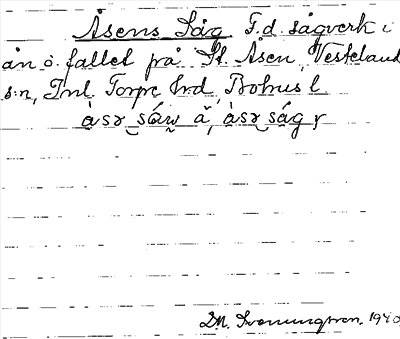 Åsens Såg F.d. sågverk i
ån ö. fallet på St. Åsen, Vesteland
s:n, Inl. Torpe hrd, Bohus l
àsɤ sáw ǎ, àsɤ ság
D.N. Svenungsson. 1940